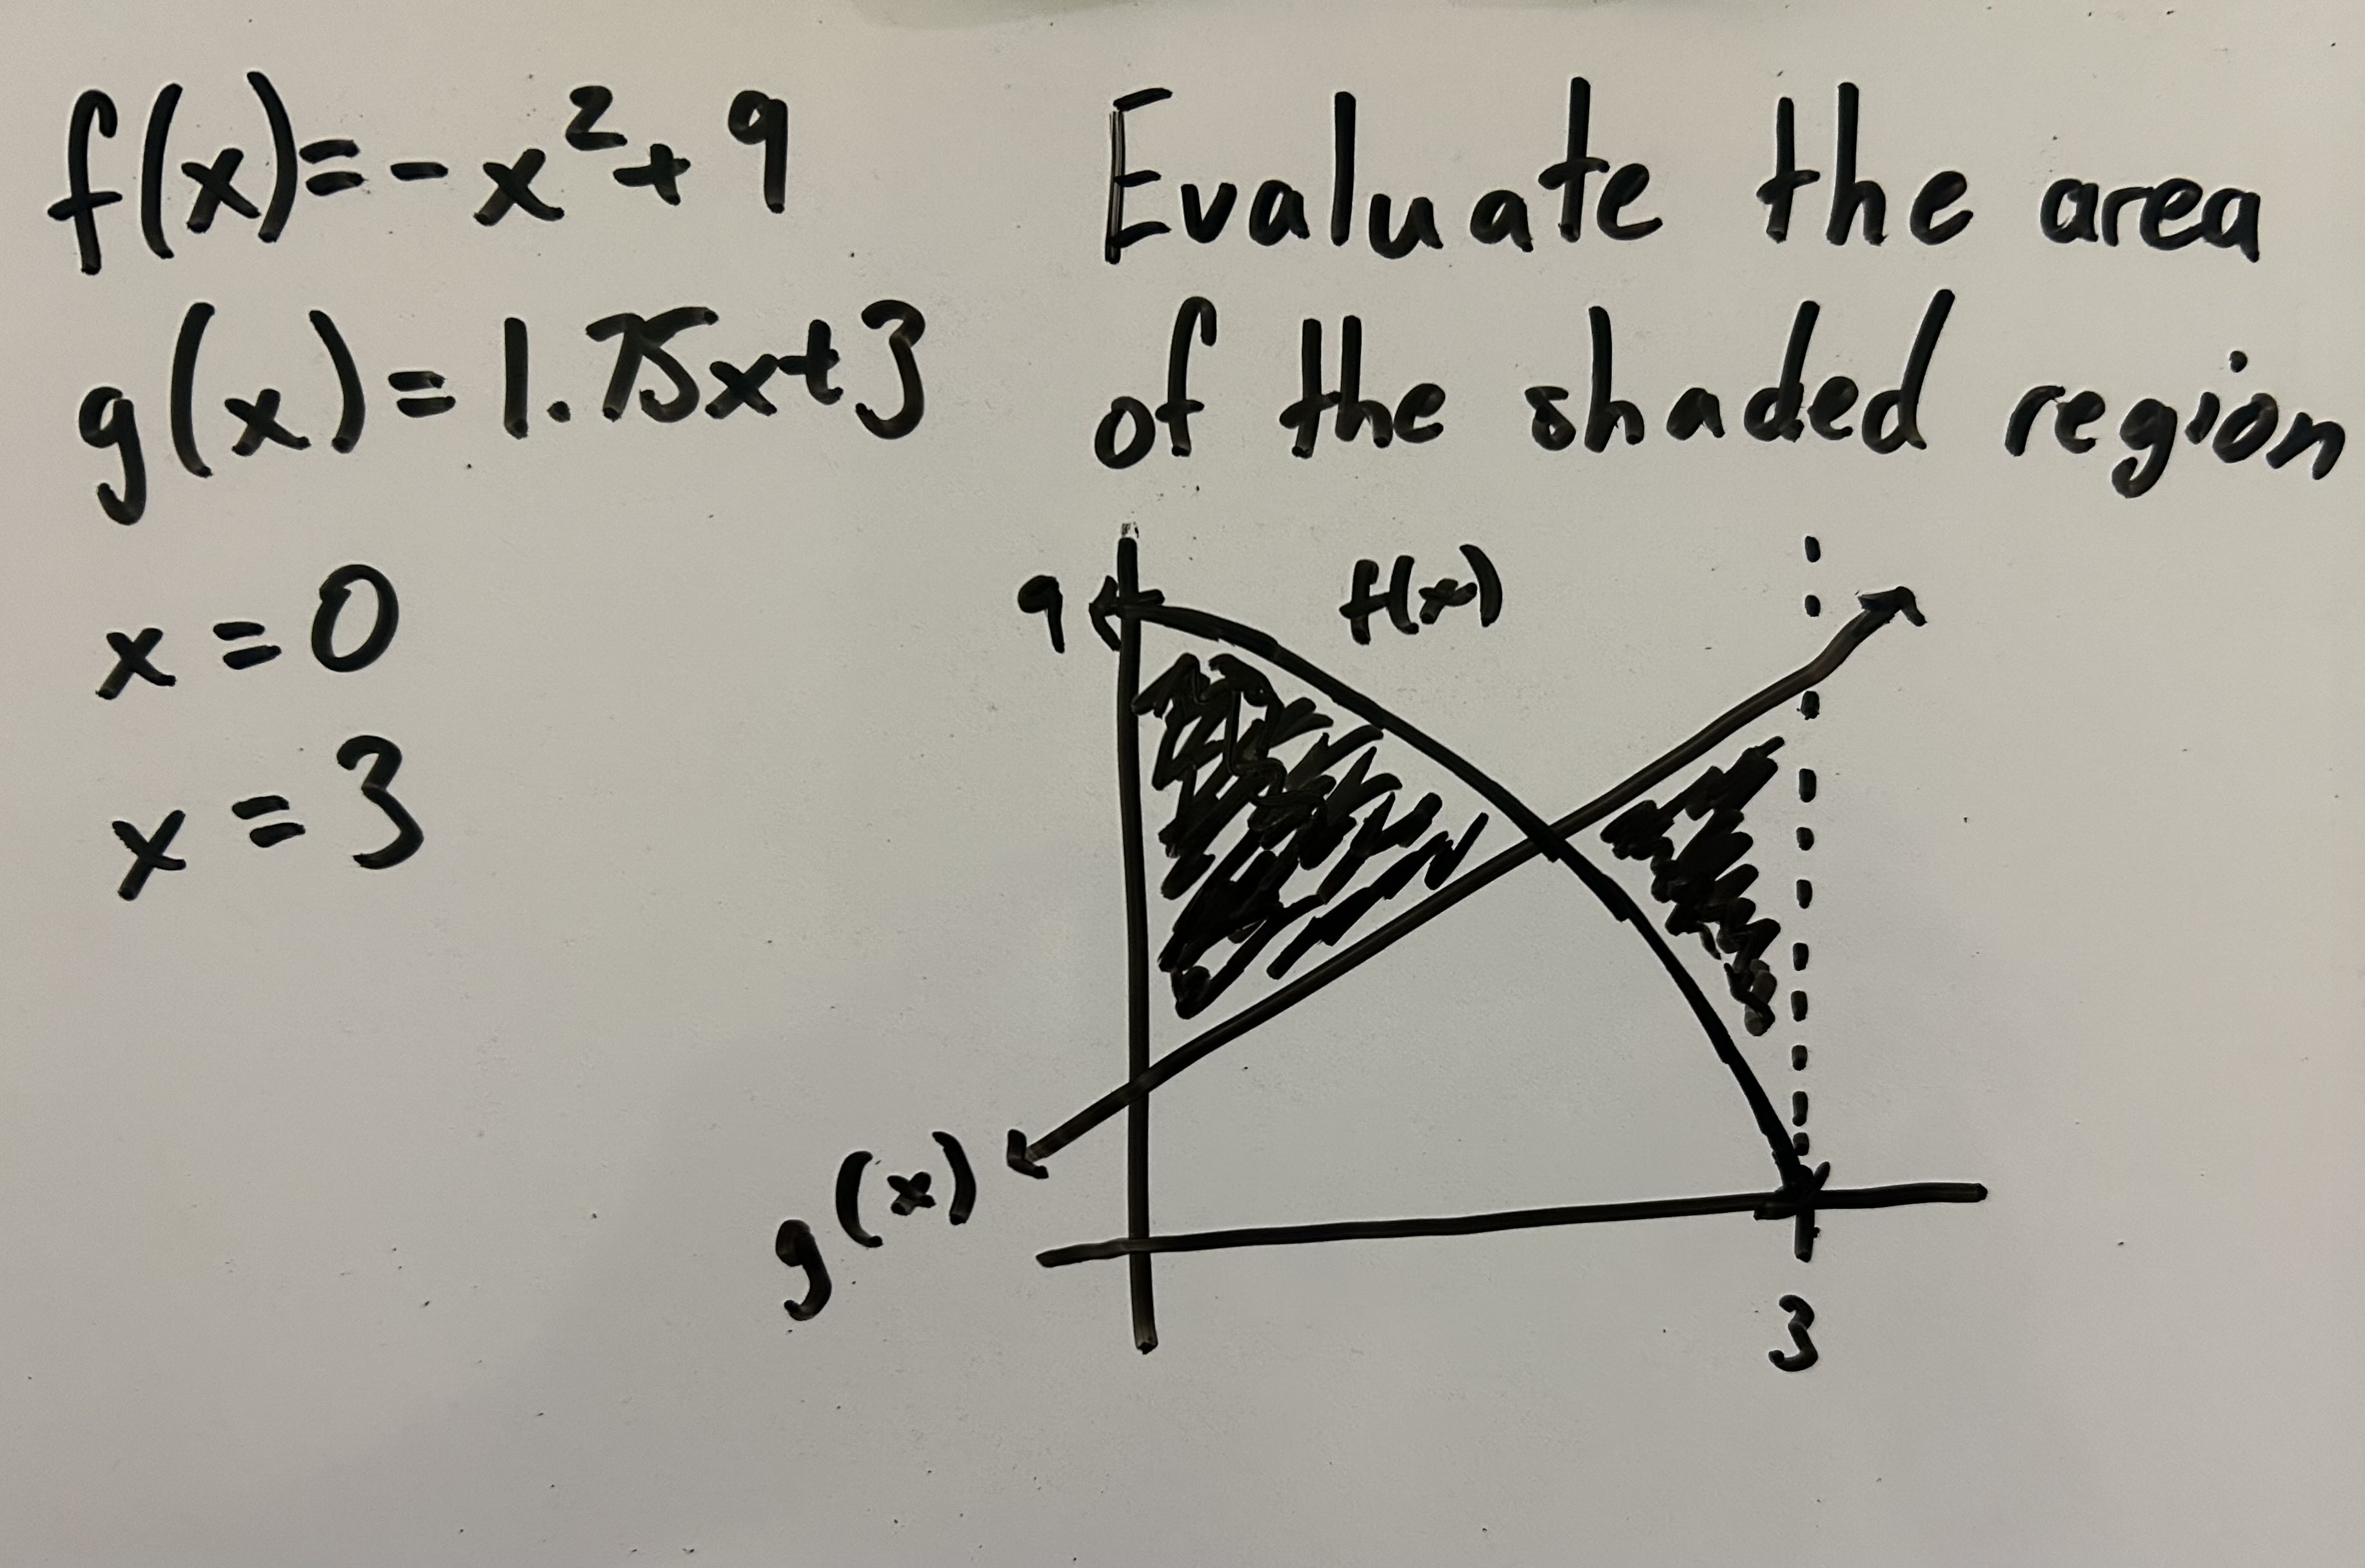 f(x)=-x²+9
g(x)=1.75x+3
x=0
x=3
Evaluate the area
of the shaded region
9
f(x)
g(x)
3